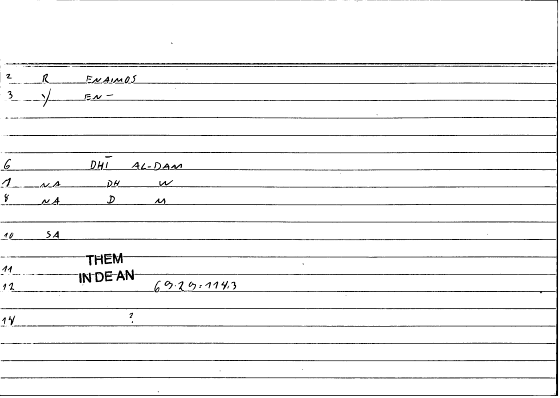 2 R ENAIMOS
3 Y EN-
6 DHĪ AL-DAM
7 NA DH W
8 NA D M
10 SA
11 THEM
IN DE AN
12 69.29:114.3
14 ?